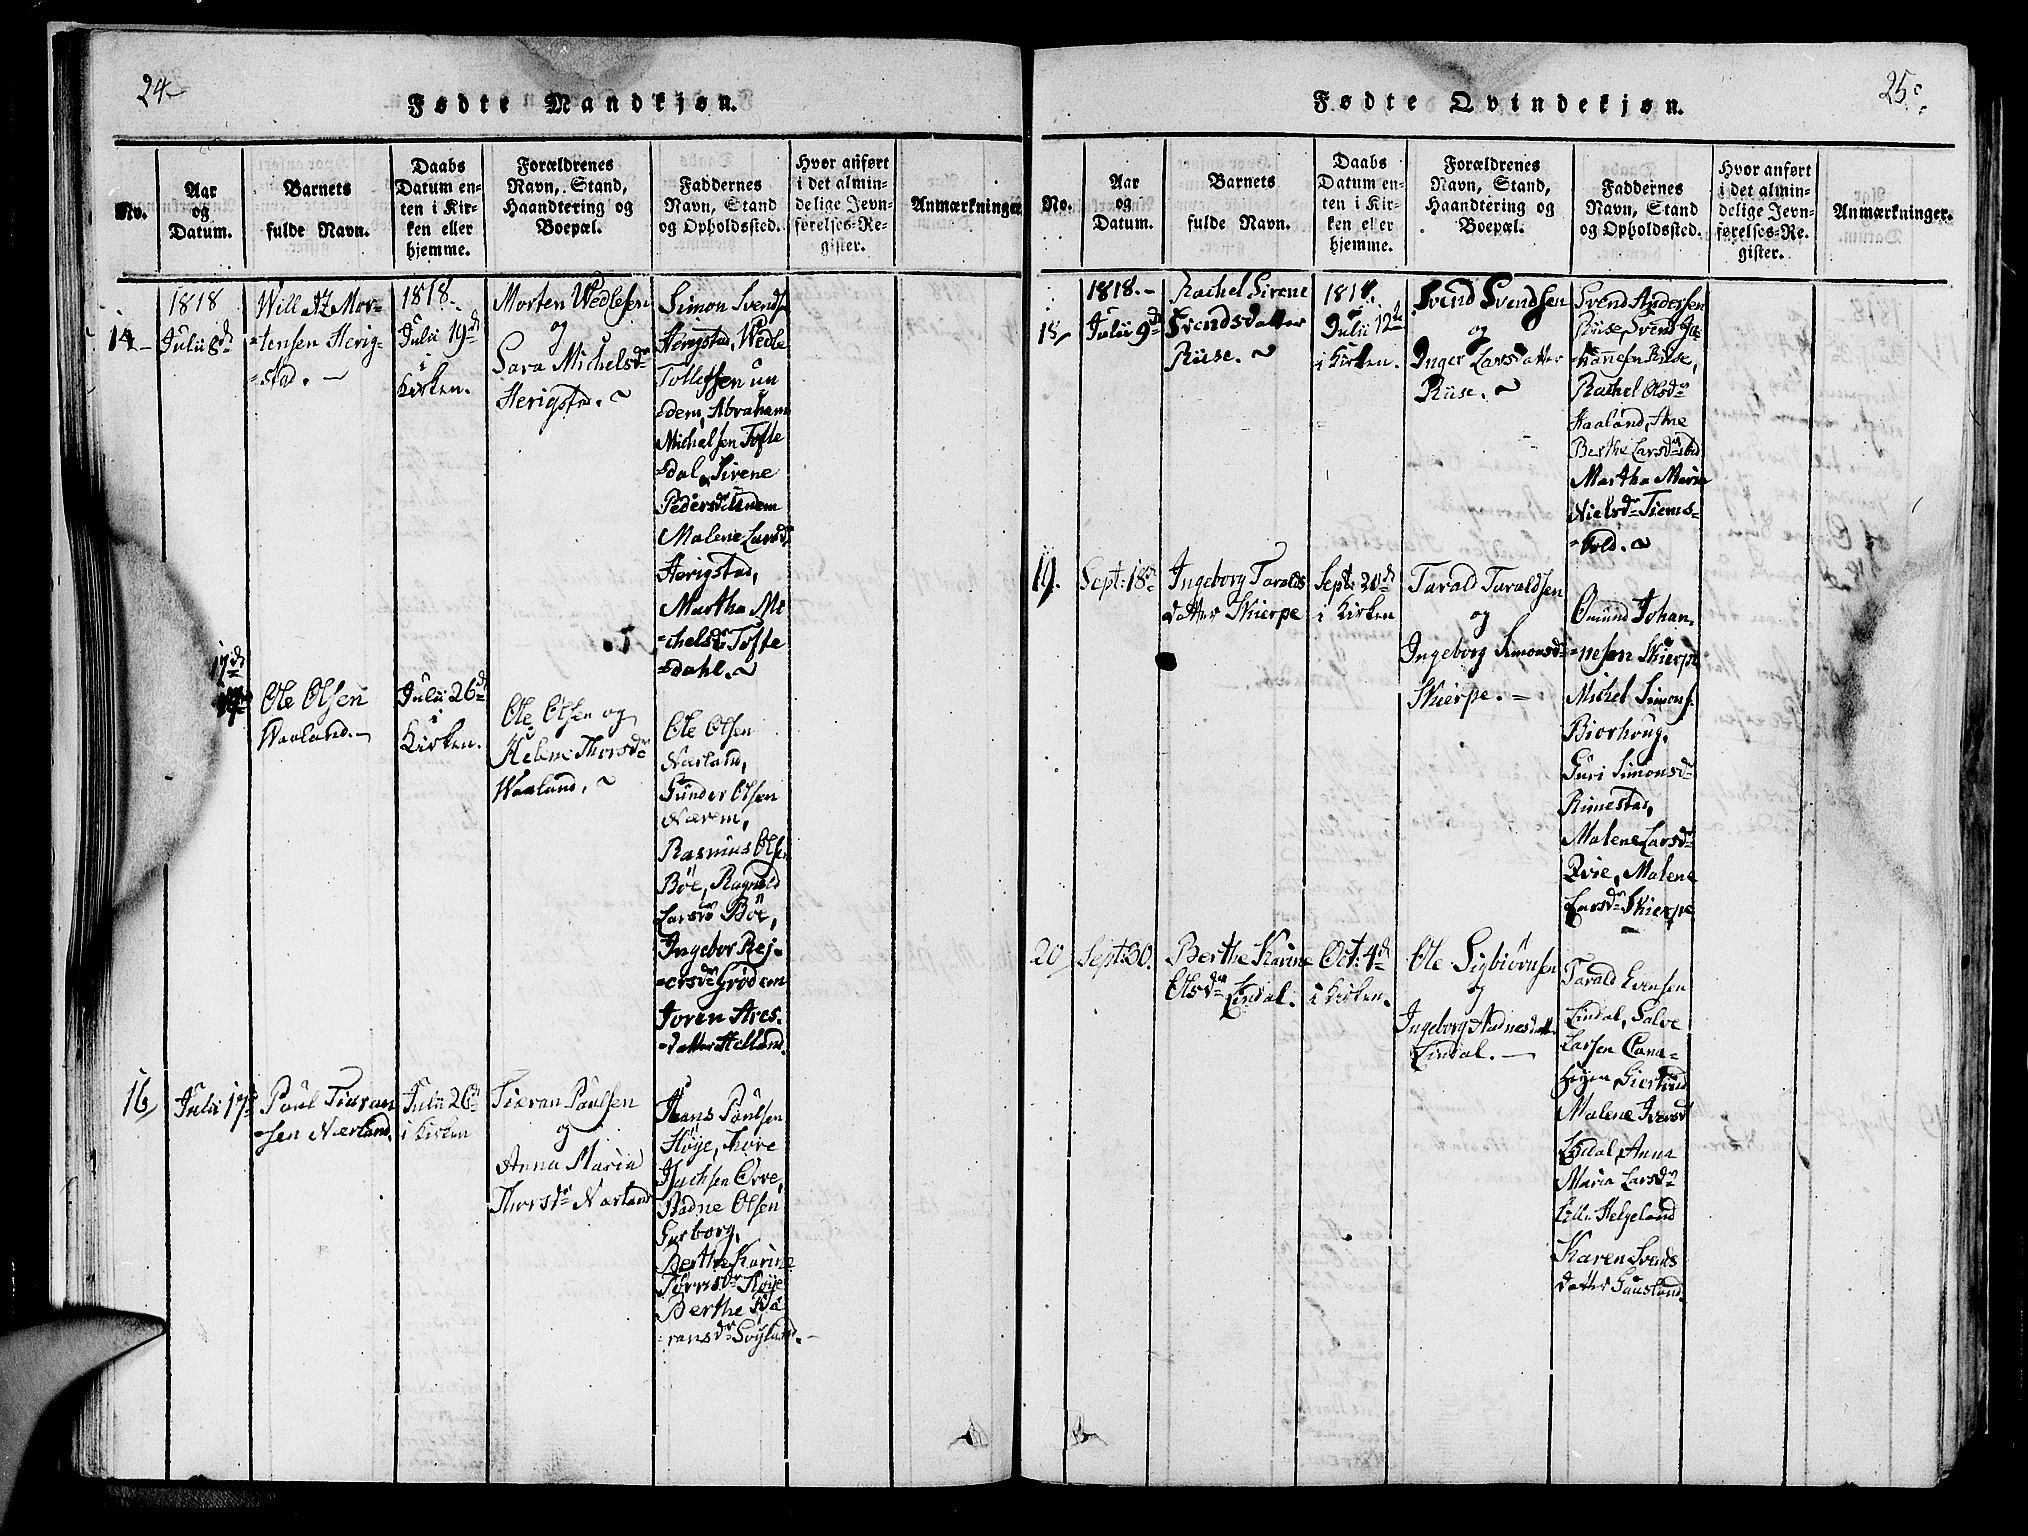 24
Fødte Mandkjøn.
No.
Aar
og
Datum.
Barnets
fulde Navn.
Daabs
Datum en-
ten i Kir-
ken eller
hjemme.
Forældrenes
Navn, Stand,
Haandtering og
Boepæl.
Faddernes
Navn, Stand
og Opholdssted.
Hvor anført
i det almin-
delige Jevn-
førelses-Re-
gister.
Anmærkninger
14
1818
Julii 8de
Mor-
tensen Herig-
stad.
1818.
Julii 19de
i
Kirken.
Morten Wedlesen
og
Sara Michelsdr
Herigstad.
Simon Svends
Herigstad, Wedle
Tollefsen un
dem, Abraham
Michelsen Tofte
dal, Sirene
Pedersdr Undem
Malene Larsdr
Herigstad,
Martha Mi
chelsdr Tofte
dahl.
17de
Ole Olsen
Waaland.
Julii 26de
i
Kirken.
Ole Olsen og
Helene Thorsdr
Waaland,
Ole Olsen
Nærland,
Gunder Olsen
Nærem,
Rasmus Olsen
Böe, Ragnild
Larsdr Böe,
Ingebor Rej-
ersdr Grödem
Joren Ares-
datter Helland.
16
Julii 17de
Paul Tiæran
sen Nærland.
Julii 26de
i Kirken
Tiæran Paulsen
og
Anna Maria
Thorsdr Nærland
Hans Paulsen
Höye, Thore
Isachsen Orre,
Aadne Olsen
Gusborg,
Berthe Karine
Törrisdr Höye
Berthe Kiæ
ransdr Søyland.
25
Fødte Qvindekjøn.
No.
Aar
og
Datum.
Barnets
fulde Navn.
Daabs
Datum en-
ten i Kir-
ken eller
hjemme.
Forældrenes
Navn, Stand,
Haandtering og
Boepæl.
Faddernes
Navn, Stand
og Opholdssted.
Hvor anført
i det almin-
delige Jevn-
førelses-Re-
gister.
Anmærkninger.
18
1818.
Julii 9de
Rachel Sirene
Svendsdatter
Riise.
1818.
Julii 12te
i Kirken.
Svend Svendsen
og
Inger Larsdatter
Riise.
Svend Andersen
Riise, Svend Jo-
hannesen Riise,
Rachel Olsdr
Haaland, Ane
Berthe Larsdr ibid
Martha Marie
Nielsdr Tiems-
vold.
19.
Sept: 18de
Ingeborg Tarals
datter Skierpe
Sept: 20de
i Kirken
Tarald Taraldsen
og
Ingeborg Simonsdr
Skierpe.
Omund Johan-
nesen Skierpe
Michel Simons.
Biorhoug,
Guri Simonsdr
Rimestad,
Malene Larsdr
Qvie, Malene
Larsdr Skierpe
20
Sept: 30.
Berthe Karine
Olsdr Lindal.
Oct: 4de
i Kirken.
Ole Sigbiörnsen
og
Ingeborg Aadnesdatt.
Lindal.
Tarald Evensen
Lindal, Salve
Larsen
Malene Iversdr
Lindal, Anna
Maria Larsdr
Lille Helgeland
Karen Svends
datter Gausland.